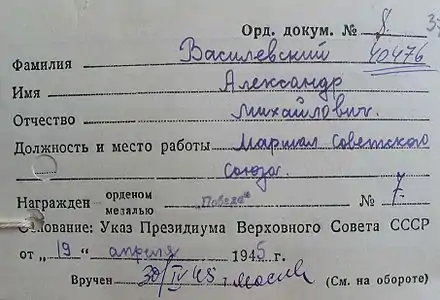 Орд. докум. № 8.
Фамилия Василевский 40476
Имя Александр
Отчество Михайлович.
Должность и место работы Маршал Советского
Союза.
Награжден орденом медалью „Победа" № 7.
Основание: Указ Президиума Верховного Совета СССР
от „19" апреля 1945 г.
Вручен 30/IV 45 г. (См. на обороте)